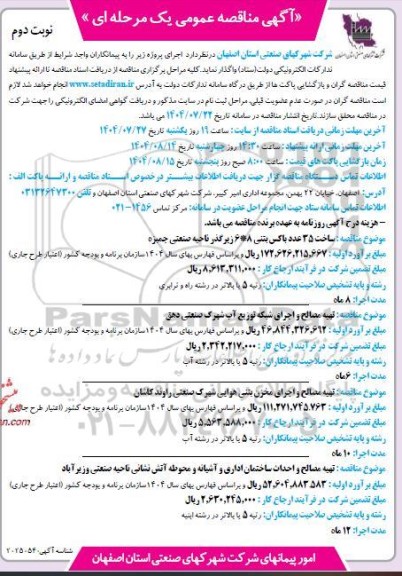 «آگهی مناقصه عمومی یک مرحله ای»
نوبت دوم
شرکت شهرکهای صنعتی استان اصفهان در نظر دارد اجرای پروژه زیر را به پیمانکاران واجد شرایط از طریق سامانه
تدارکات الکترونیکی دولت (ستاد) واگذار نماید. کلیه مراحل برگزاری مناقصه از دریافت اسناد مناقصه تا ارائه پیشنهاد
قیمت مناقصه گران و بازگشایی پاکت ها از طریق درگاه سامانه تدارکات دولت به آدرس www.setadiran.ir انجام خواهد شد. لازم
است مناقصه گران در صورت عدم عضویت قبلی، مراحل ثبت نام در سایت مذکور و دریافت گواهی امضای الکترونیکی را جهت شرکت
در مناقصه محقق سازند. تاریخ انتشار مناقصه در سامانه تاریخ ۱۴۰۴/۰۷/۲۲ می باشد.
آخرین مهلت زمانی دریافت اسناد مناقصه از سایت: ساعت ۱۹ روز یکشنبه تاریخ ۱۴۰۴/۰۷/۲۷
آخرین مهلت زمانی ارائه پیشنهاد: ساعت ۱۴:۳۰ روز چهارشنبه تاریخ ۱۴۰۴/۰۸/۱۴
زمان بازگشایی پاکت های قیمت: ساعت ۸:۰۰ صبح روز پنجشنبه تاریخ ۱۴۰۴/۰۸/۱۵
اطلاعات تماس دستگاه مناقصه گزار جهت دریافت اطلاعات بیشتر در خصوص اسناد مناقصه و ارائه پاکت الف:
آدرس: اصفهان، خیابان ۲۲ بهمن، مجموعه اداری امیرکبیر، شرکت شهرکهای صنعتی استان اصفهان و تلفن ۰۳۱۳۲۶۴۷۳۰۰
اطلاعات تماس سامانه ستاد جهت انجام مراحل عضویت در سامانه: مرکز تماس ۱۴۵۶-۰۲۱
- هزینه درج آگهی روزنامه به عهده برنده مناقصه می باشد.
موضوع مناقصه: ساخت ۳۵ عدد باکس بتنی ۸*۶ زیرگذر ناحیه صنعتی جمبزه
مبلغ برآورد اولیه: ۱۷۲,۶۲۶,۲۱۵,۶۶۷ ریال و براساس فهارس بهای سال ۱۴۰۴ سازمان برنامه و بودجه کشور (اعتبار طرح جاری)
مبلغ تضمین شرکت در فرآیند ارجاع کار: ۸,۶۱۳,۳۱۱,۰۰۰ ریال
رشته و پایه تشخیص صلاحیت پیمانکاران: رتبه ۵ یا بالاتر در رشته راه و ترابری
مدت اجرا: ۸ ماه
موضوع مناقصه: تهیه مصالح و اجرای شبکه توزیع آب شهرک صنعتی دهق
مبلغ برآورد اولیه: ۴۶,۸۴۴,۳۲۶,۶۱۲ ریال و براساس فهارس بهای سال ۱۴۰۴ سازمان برنامه و بودجه کشور (اعتبار طرح جاری)
مبلغ تضمین شرکت در فرآیند ارجاع کار: ۲,۳۴۲,۲۱۷,۰۰۰ ریال
رشته و پایه تشخیص صلاحیت پیمانکاران: رتبه ۵ یا بالاتر در رشته آب
مدت اجرا: ۶ ماه
موضوع مناقصه: تهیه مصالح و اجرای مخزن بتنی هوایی شهرک صنعتی راوند کاشان
مبلغ برآورد اولیه: ۱۱۱,۲۷۱,۷۴۵,۷۶۳ ریال و براساس فهارس بهای سال ۱۴۰۴ سازمان برنامه و بودجه کشور (اعتبار طرح جاری)
مبلغ تضمین شرکت در فرآیند ارجاع کار: ۵,۵۶۳,۵۸۸,۰۰۰ ریال
رشته و پایه تشخیص صلاحیت پیمانکاران: رتبه ۵ یا بالاتر در رشته آب
مدت اجرا: ۱۰ ماه
موضوع مناقصه: تهیه مصالح و احداث ساختمان اداری و آشیانه و محوطه آتش نشانی ناحیه صنعتی وزیرآباد
مبلغ برآورد اولیه: ۵۲,۶۰۴,۸۸۳,۵۸۳ ریال و براساس فهارس بهای سال ۱۴۰۴ سازمان برنامه و بودجه کشور (اعتبار طرح جاری)
مبلغ تضمین شرکت در فرآیند ارجاع کار: ۲,۶۳۰,۲۴۵,۰۰۰ ریال
رشته و پایه تشخیص صلاحیت پیمانکاران: رتبه ۵ یا بالاتر در رشته ابنیه
مدت اجرا: ۱۲ ماه
شناسه آگهی: ۲۰۲۵۰۵۴۰
امور پیمانهای شرکت شهرکهای صنعتی استان اصفهان